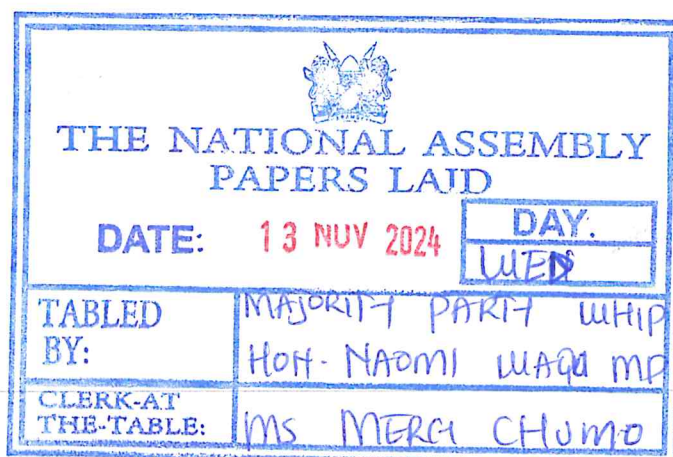 THE NATIONAL ASSEMBLY
PAPERS LAID
DATE: 13 NOV 2024
DAY:
WED
TABLED BY:
MAJORITY PARTY WHIP
HON. NAOMI WAQO MP
CLERK-AT THE-TABLE:
MS MERCY CHUMO